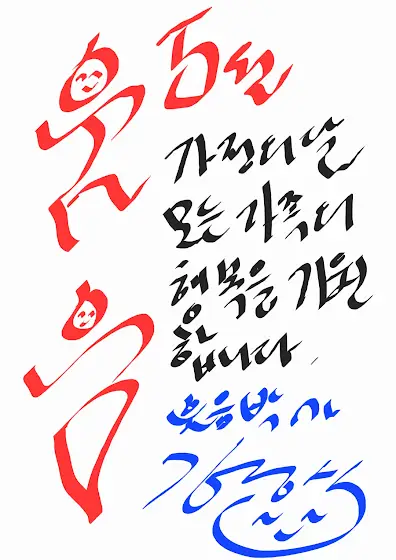 웃
음
5월
가정의 달
모든 가족의
행복을 기원
합니다.
웃음박사